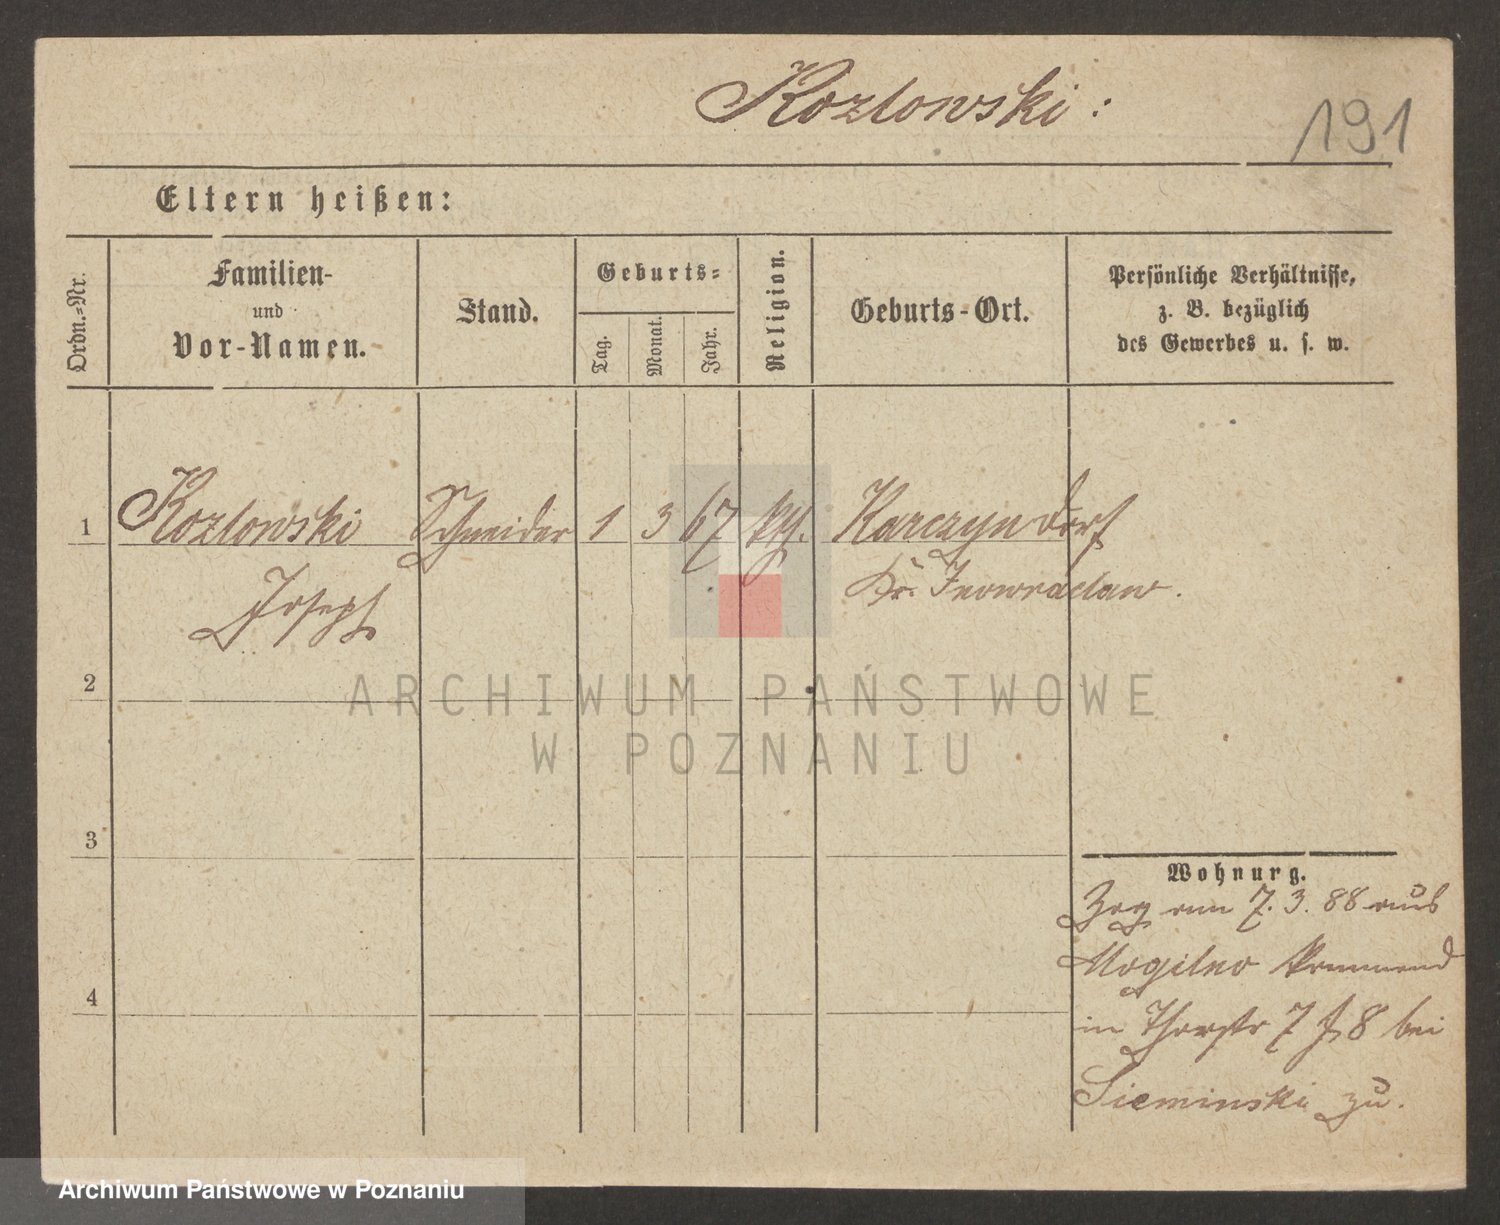 Kozlowski:
191
Eltern heißen:
Ordn.-Nr.
Familien-
und
Vor-Namen.
Stand.
Geburts-
Tag.
Monat.
Jahr.
Religion.
Geburts-Ort.
Persönliche Verhältnisse,
z. B. bezüglich
des Gewerbes u. s. w.
1 Kozlowski Schneider 1 3 67 kth. Karczyn Dorf
Joseph
Kr. Inowraclaw.
2
ARCHIWUM PAŃSTWOWE
W POZNANIU
3
Wohnurg.
Zog am 7. 3. 88 aus
Mogilno kommend
4
in Thorstr 7 8 bei
Sieminski zu.
Archiwum Państwowe w Poznaniu